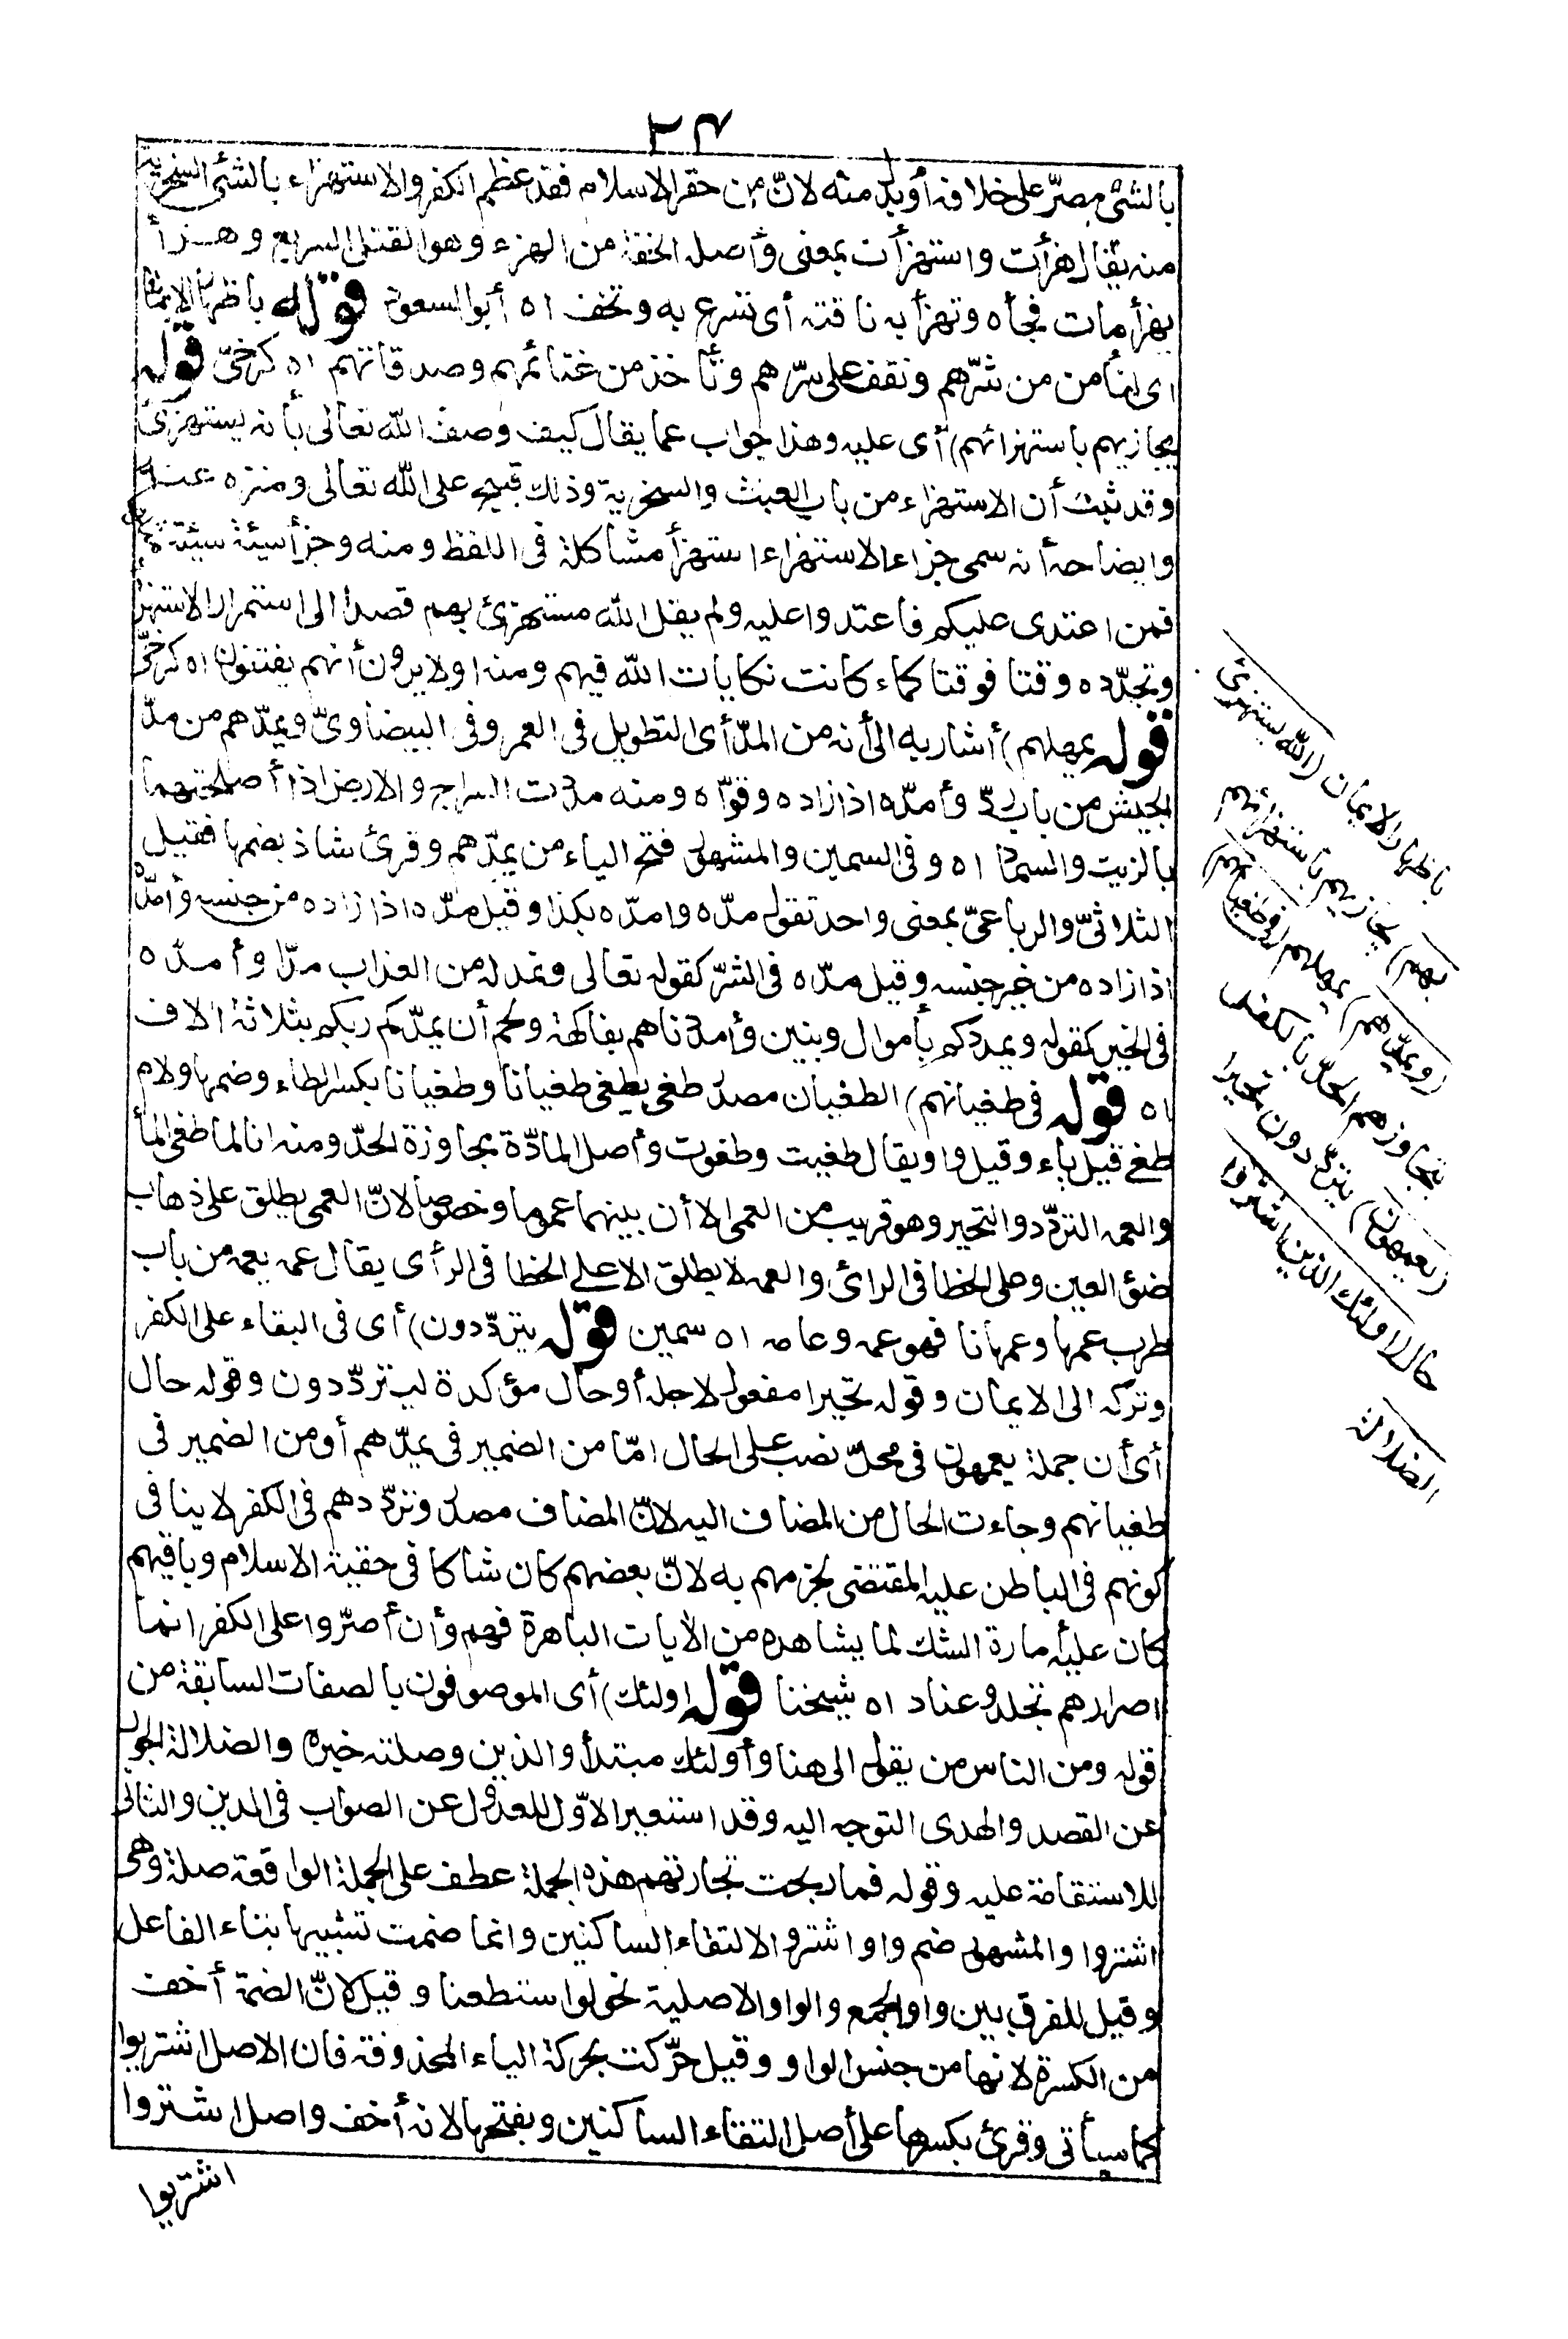 ٢٤
بالشئ مصرّ على خلافه أو بدل منه لانّ من حقر الاسلام فقد عظم الكفر والاستهزاء بالشئ السخرية
منه يقال هزأت واستهزأت بمعنى وأصله الخفة من الهزء وهو القتل السريع وهزأ
يهزأ مات فجأه وتهزأ به ناقته أى تسرع به وتخف اه أبو السعود قوله باظهار الايمان
اى لنأمن من شرّهم ونقف على سرّهم ونأخذ من غنائمهم وصدقاتهم اه كرخىّ قوله
يجازيهم باستهزائهم) أى عليه وهذا جواب عما يقال كيف وصف الله تعالى بأنه يستهزئ
وقد ثبت أن الاستهزاء من باب العبث والسخرية وذلك قبيح على الله تعالى ومنزه عنه
وايضاحه أنه سمى جزاء الاستهزاء استهزأ مشاكلة فى اللفظ ومنه وجزأ سيئة سيئة مثلها
فمن اعتدى عليكم فاعتدوا عليه ولم يقل الله مستهزئ بهم قصدا الى استمرار الاستهزاء
وتجدّده وقتا فوقتا كماء كانت نكايات الله فيهم ومنه اولا يرون أنهم يفتنون اه كرخىّ
قوله يمهلهم) أشار به الى أنه من المدّ أى التطويل فى العمر وفى البيضاوىّ ويمدّهم من مدّ
الجيش من باب ردّ وأمدّه اذا زاده وقوّاه ومنه مددت السراج والارض اذا أصلحتهما
بالزيت والسماد اه وفى السمين والمشهور فتح الياء من يمدّهم وقرئ شاذ بضمها فقيل
الثلاثىّ والرباعىّ بمعنى واحد تقول مدّه وامدّه بكذا وقيل مدّه اذا زاده من جنسه وأمدّه
اذا زاده من غير جنسه وقيل مدّه فى الشرّ كقوله تعالى ونمد له من العذاب مدّا وأمدّه
فى الخير كقوله ويمددكم بأموال وبنين وأمددناهم بفاكهة ولحم أن يمدّكم ربكم بثلاثة الاف
اه قوله فى طغيانهم) الطغيان مصدر طغى يطغى طغيانا وطغيانا بكسر الطاء وضمها ولام
طغى قيل ياء وقيل واو يقال طغيت وطغوت وأصل المادّة مجاوزة الحدّ ومنه انا لما طغى المأ
والعمه التردّد والتحير وهو قريب من العمى الا أن بينهما عموما وخصوصا لانّ العمى يطلق على ذهاب
ضئ العين وعلى الخطا فى الرائ والعمه لا يطلق الا على الخطا فى الرأى يقال عمه يعمه من باب
طرب عمها وعمهانا فهو عمه وعامه اه سمين قوله يتردّدون) أى فى البقاء على الكفر
وتركه الى الايمان وقوله تحيرا مفعول لاجله أو حال مؤكدة ليتردّدون وقوله حال
أى أن جملة يعمهون فى محلّ نصب على الحال امّا من الضمير فى يمدّهم أو من الضمير فى
طغيانهم وجاءت الحال من المضاف اليه لانّ المضاف مصدر وتردّدهم فى الكفر لا ينافى
كونهم فى الباطن عليه المقتضى لجزمهم به لانّ بعضهم كان شاكا فى حقية الاسلام وباقيهم
كان عليه أمارة الشك لما يشاهده من الأيات الباهرة فهم وأن أصرّوا على الكفر انما
اصرارهم تجلد وعناد اه شيخنا قوله اولئك) أى الموصوفون بالصفات السابقة من
قوله ومن الناس من يقول الى هنا وأولئك مبتدأ والذين وصلته خبره والضلالة الجور
عن القصد والهدى التوجه اليه وقد استعير الاوّل للعدول عن الصواب فى الدين والثانى
للاستقامة عليه وقوله فما ربحت تجارتهم هذه الجملة عطف على الجملة الواقعة صلة وهى
اشتروا والمشهور ضم واو اشتروا لالتقاء الساكنين وانما ضمت تشبيها بتاء الفاعل
وقيل للفرق بين واو الجمع والواو الاصلية نحو لو استطعنا وقيل لانّ الضمة أخف
من الكسرة لانها من جنس الواو وقيل حرّكت بحركة الياء المحذوفة فان الاصل اشتريوا
كما سيأتى وقرئ بكسرها على أصل التقاء الساكنين وبفتحها لانه أخف واصل اشتروا
اشتريوا
باظهار الايمان (الله يستهزئ
بهم) يجازيهم باستهزائهم
(ويمدّهم) يمهلهم (فى طغيانهم)
بتجاوزهم الحدّ بالكفر
(يعمهون) يتردّدون تحيرا
حال (اولئك الذين اشتروا
الضلالة